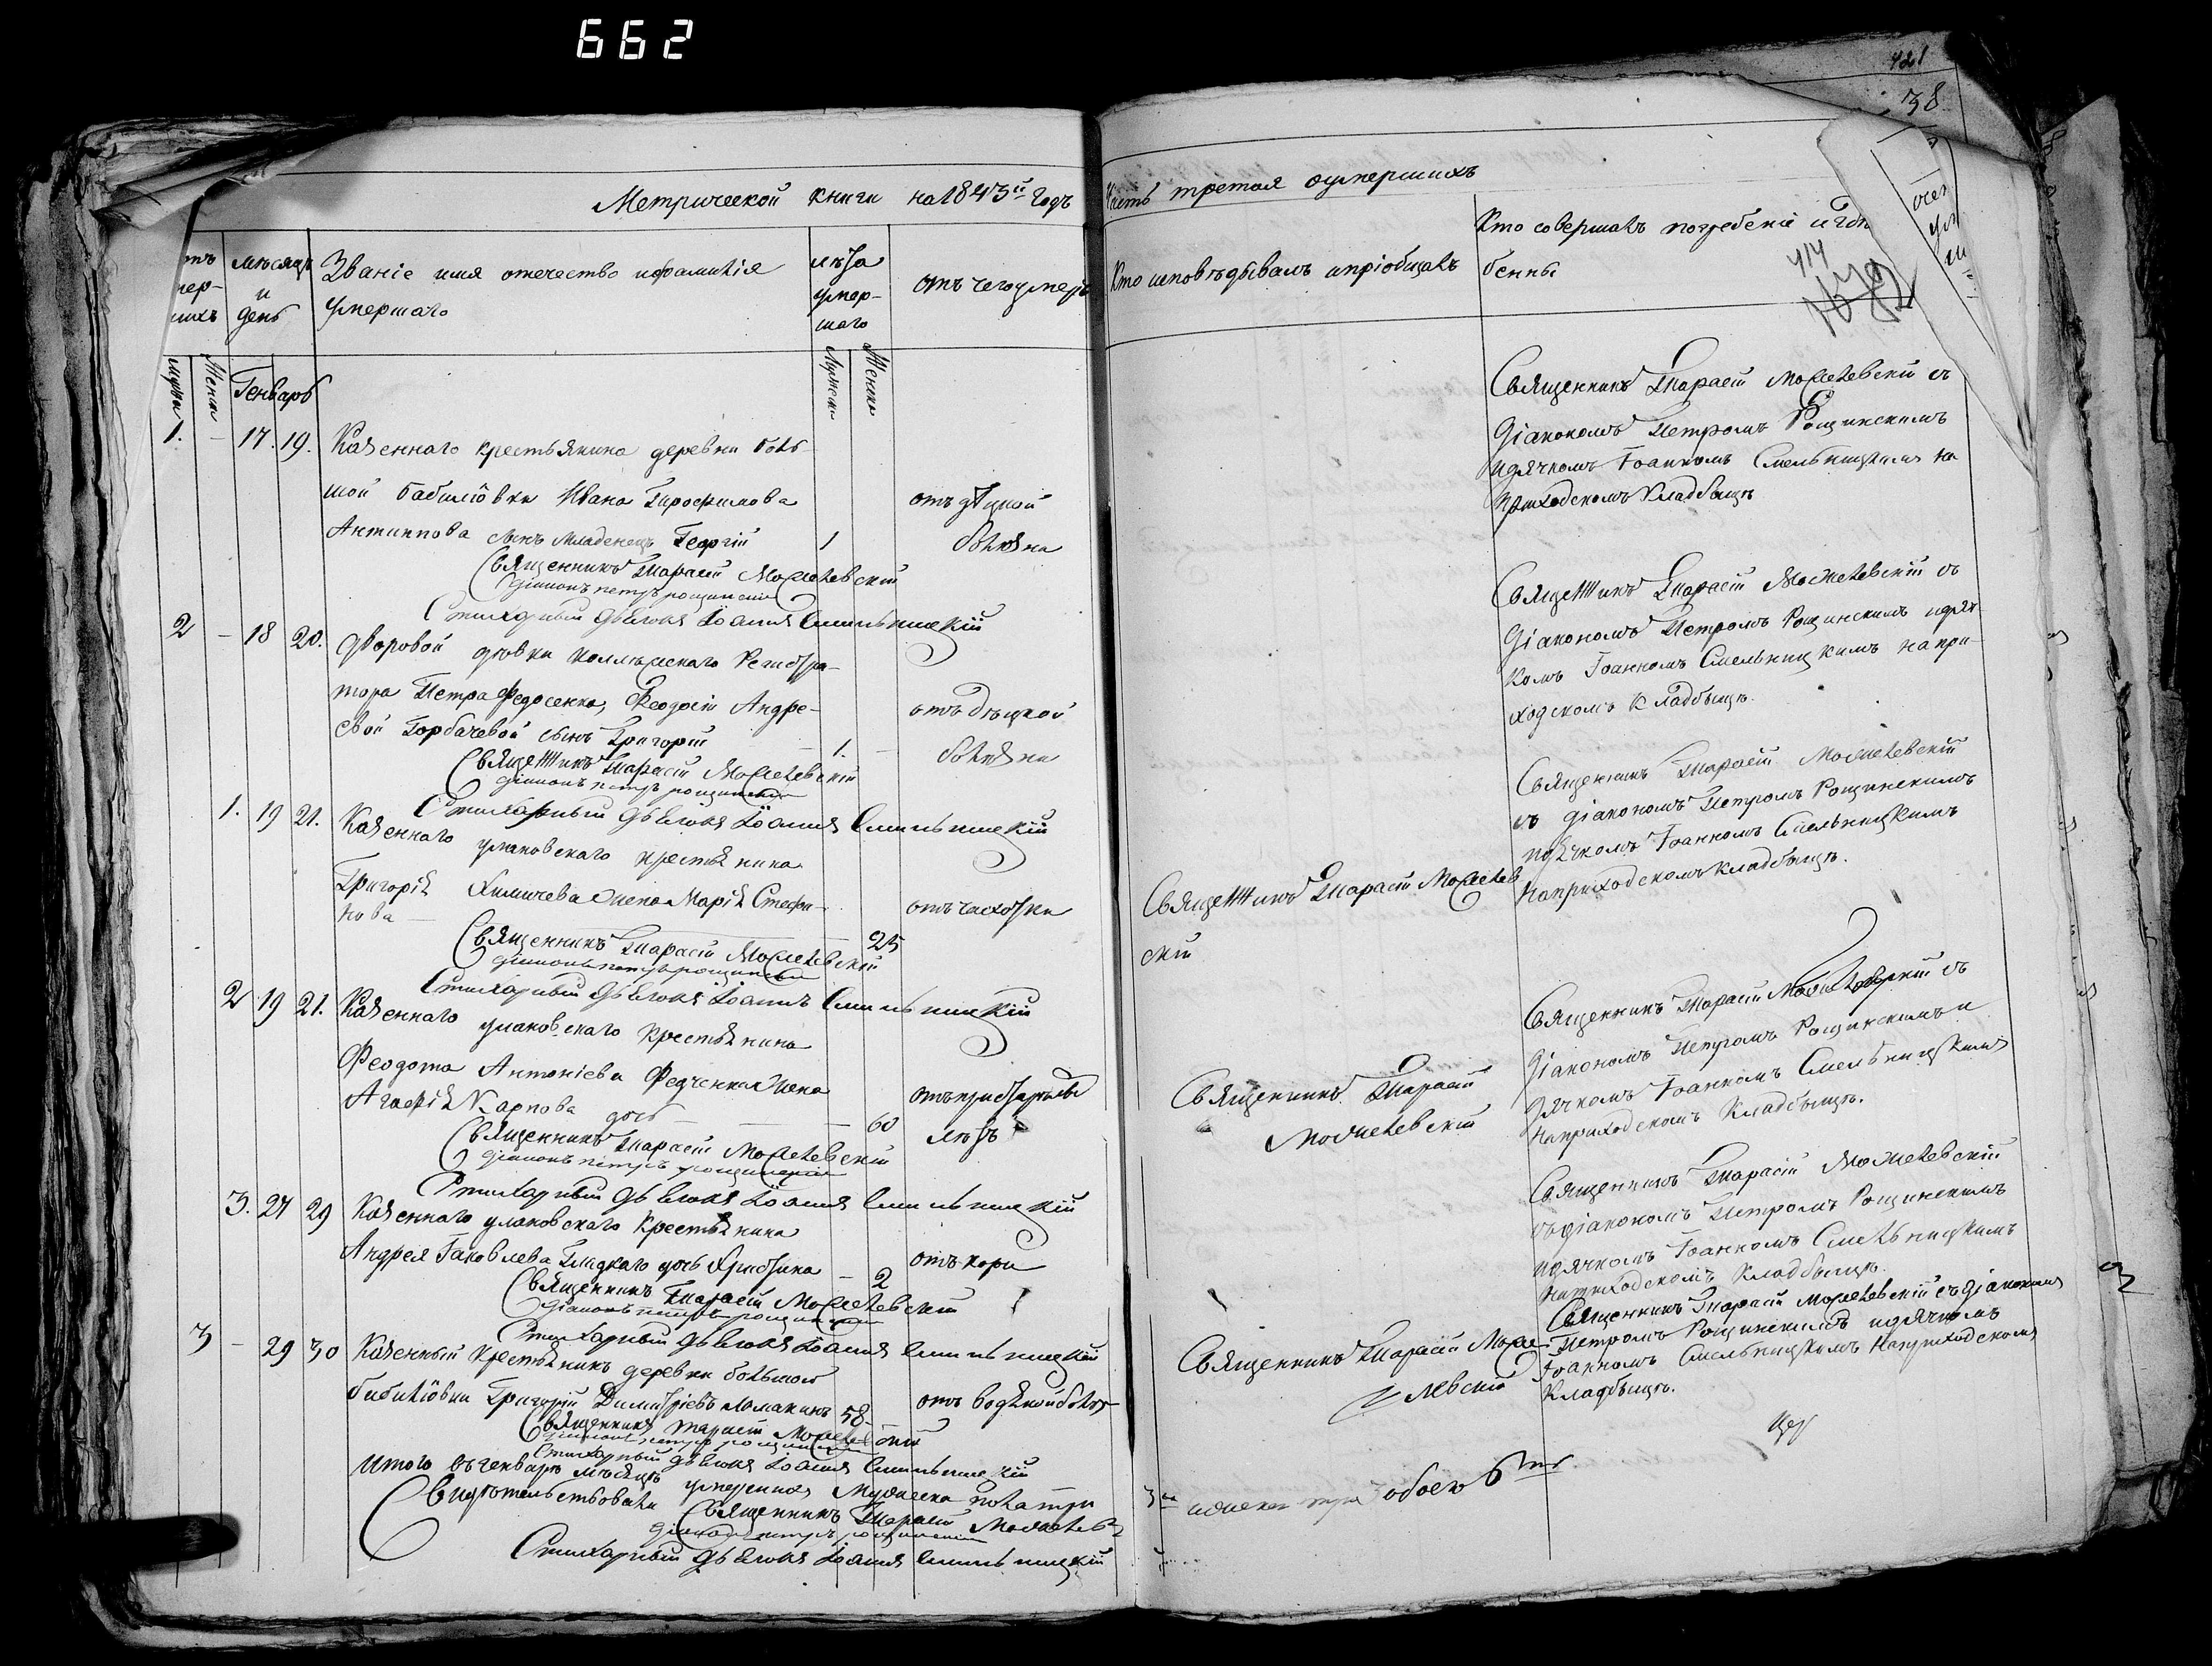 662
421
38
Метрической книги на 1843й Годъ
Часть третая оумершихъ
мѣсяцъ и день
Званіе имя отечество ифамилія умершаго
лѣта умер-
шаго
отъ чего умеръ
Кто исповѣдывалъ ипріобщалъ
Кто совершалъ погребеніе
бенны
414
Женска
Мужеска
Женска
Генварь
1. - 17. 19. Казеннаго крестьянина деревни боль-
шой бабиловки Ивана Трофимова
Антиппова сынъ младенецъ Георгій 1
отъ дѣцкой
болѣзни
Священникъ Тарасій Могилевскій
діаконъ петръ рощинскій
Стихарный дьячокъ Іоаннъ Смельницкій
Священникъ Тарасій Могилевскій съ
діакономъ Петромъ Рощинскимъ
идячкомъ Іоанномъ Смельницкимъ на
приходскомъ кладбищѣ
2 - 18 20. дворовой девки коллежскаго Регистра-
тора Петра Федосенка, Феодосіи Андре-
евой Горбачевой сынъ Григорій - 1. -
отъ дѣцкой
болѣзни
Священникъ Тарасій Могилевскій
діаконъ петръ рощинскій
Стихарный дьячокъ Іоаннъ Смельницкій
Священникъ Тарасій Могилевскій съ
діакономъ Петромъ Рощинскимъ идяч-
комъ Іоанномъ Смельницкимъ на при-
ходскомъ кладбищѣ.
1. 19 21. Казеннаго улановскаго крестьянина
Григорія Химичева жена Марія Стефа-
нова - 25
отъ чахотки
Священникъ Тарасій Могилевскій
діаконъ петръ рощинскій
Стихарный дьячокъ Іоаннъ Смельницкій
Священникъ Тарасій Могилев
скій
Священникъ Тарасій Могилевскій
съ діакономъ Петромъ Рощинскимъ
идячкомъ Іоанномъ Смельницкимъ
наприходскомъ кладбищѣ.
2 19 21. Казеннаго улановскаго крестьянина
Феодота Антоніева Федченка жена
Агафія Карпова дочь - 60
отъ пристарелы
лѣтъ
Священникъ Тарасій Могилевскій
діаконъ петръ рощинскій
Стихарный дьячокъ Іоаннъ Смельницкій
Священникъ Тарасій
Могилевскій
Священникъ Тарасій Могилевскій съ
діакономъ Петромъ Рощинскимъ и
дячкомъ Іоанномъ Смельницкимъ
наприходскомъ кладбищѣ.
3. 27 29 Казеннаго улановскаго крестьянина
Андрея Іаковлева Гладкаго дочь Христина - 2
отъ кори
Священникъ Тарасій Могилевскій
діаконъ петръ рощинскій
Стихарный дьячокъ Іоаннъ Смельницкій
Священникъ Тарасій Могилевскій
съ діакономъ Петромъ Рощинскимъ
идячкомъ Іоанномъ Смельницкимъ
наприходскомъ кладбищѣ.
3 - 29 30 Казенный крестьянинъ деревни большой
бабиловки Григорій Димитріевъ Ломакинъ 58
отъ водяной
Священникъ Тарасій Могилевскій
діаконъ петръ рощинскій
Стихарный дьячокъ Іоаннъ Смельницкій
Священникъ Тарасій Моги-
левскій
Священникъ Тарасій Могилевскій съ діакономъ
Петромъ Рощинскимъ идячкомъ
Іоанномъ Смельницкимъ наприходскомъ
кладбищѣ.
Итого въ генварѣ мѣсяцѣ умершихъ Мужеска пола три
женска три обоего 6ть
Свидѣтельствовали Священникъ Тарасій Могилев
діаконъ петръ рощинскій
Стихарный дьячокъ Іоаннъ Смельницкій